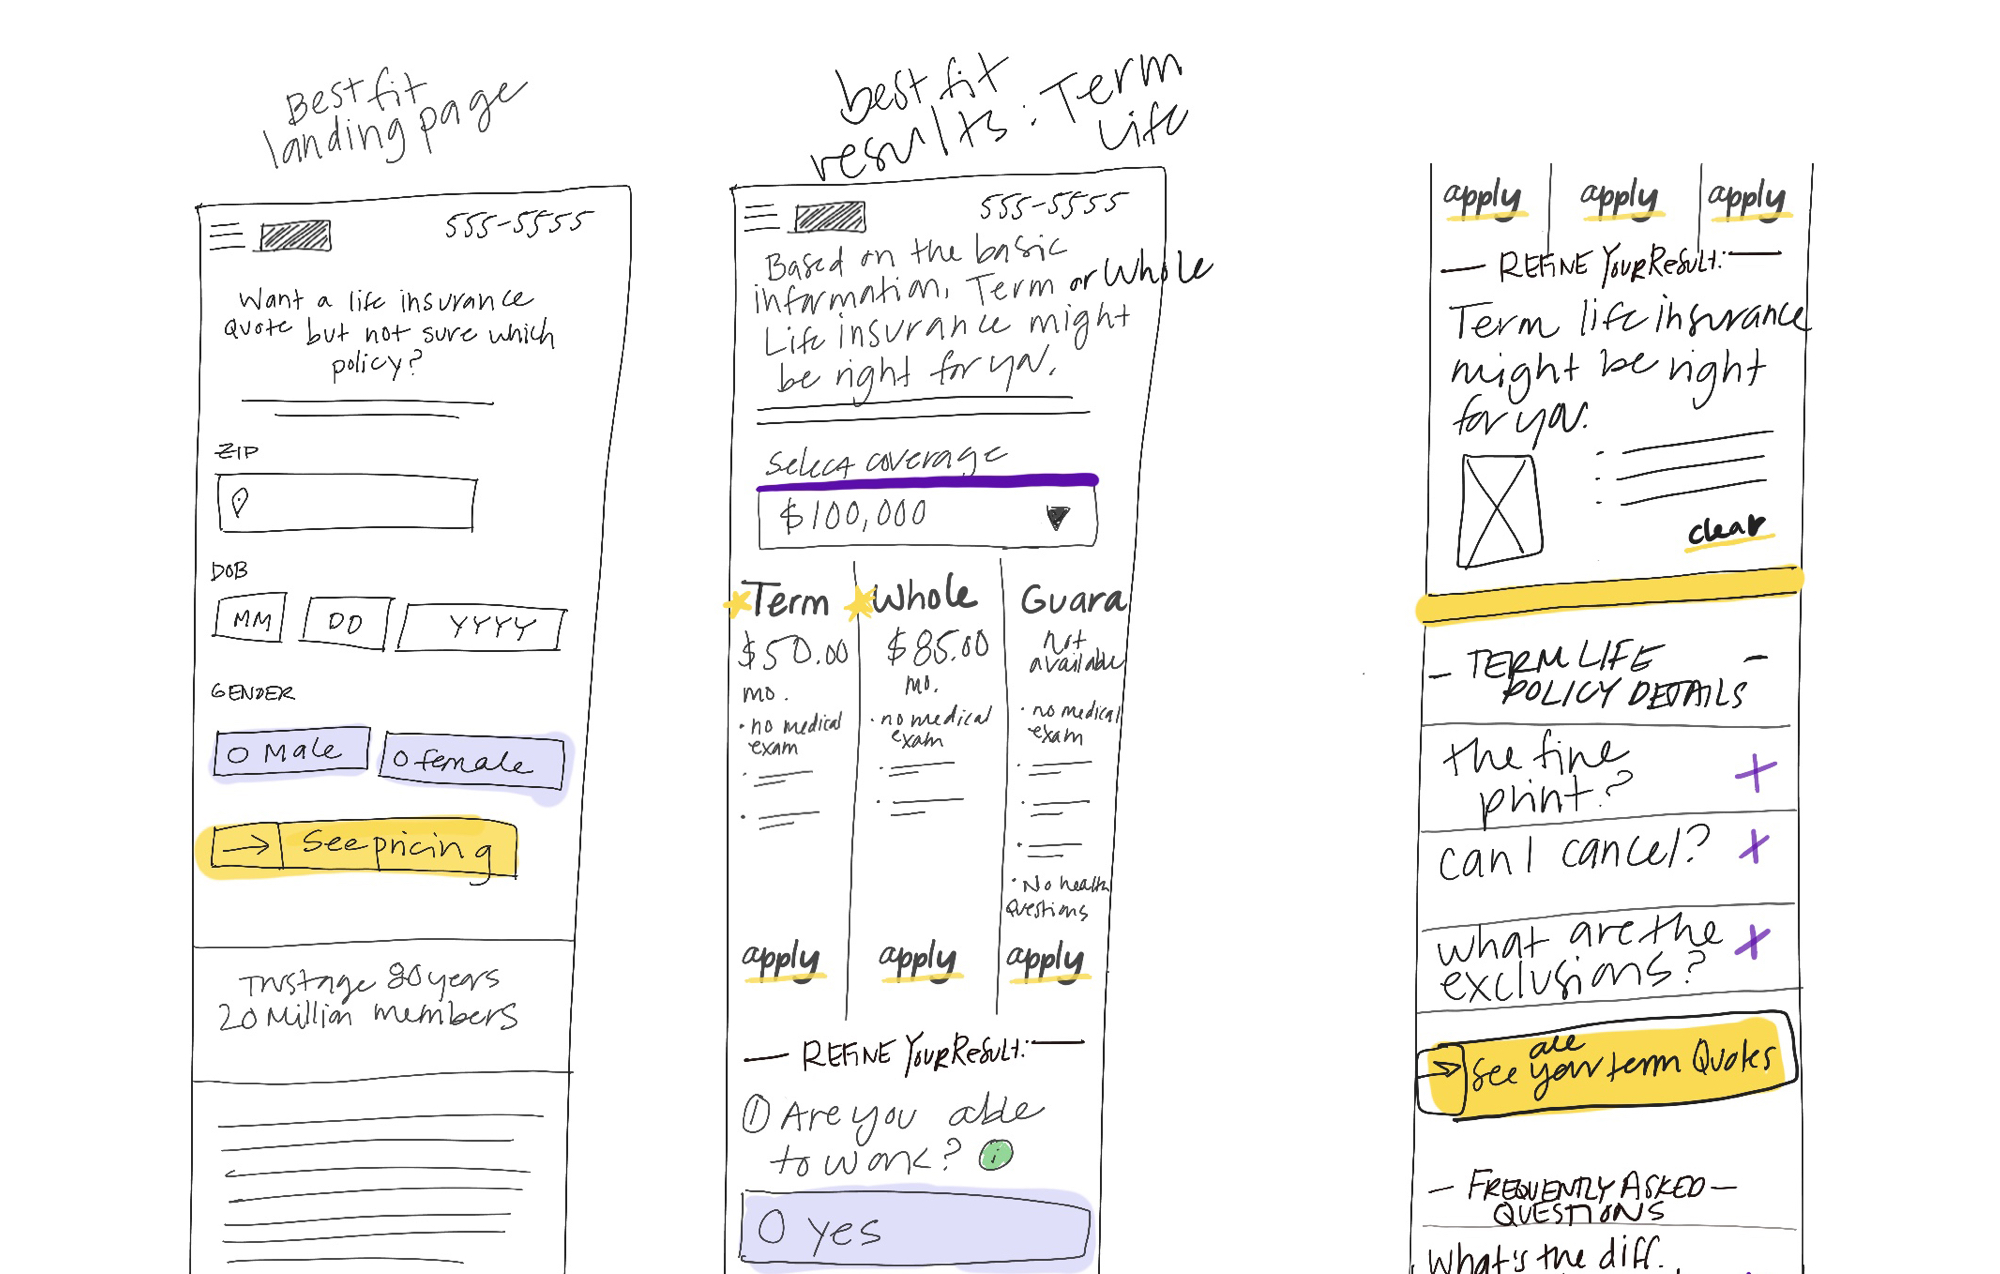 Best fit
landing page
555-5555
Want a life insurance
Quote but not sure which
policy?
ZIP
DOB
MM DD YYYY
GENDER
O Male O female
→ See pricing
Trustage 80 years
20 Million members
best fit
results: Term
Life
555-5555
Based on the basic
information, Term or Whole
Life insurance might
be right for you.
Select coverage
$100,000
Term
$50.00
mo.
• no medical
exam
apply
Whole
$85.00
mo.
• no medical
exam
apply
Guara
not
available
• no medical
exam
• No health
Questions
apply
— REFINE YOUR RESULT: —
① Are you able
to work? i
O yes
apply apply apply
— REFINE YOUR RESULT: —
Term life insurance
might be right
for you.
clear
— TERM LIFE —
POLICY DETAILS
the fine
print? +
can I cancel? +
what are the +
exclusions?
→ See all your term Quotes
— FREQUENTLY ASKED —
QUESTIONS
What's the diff.